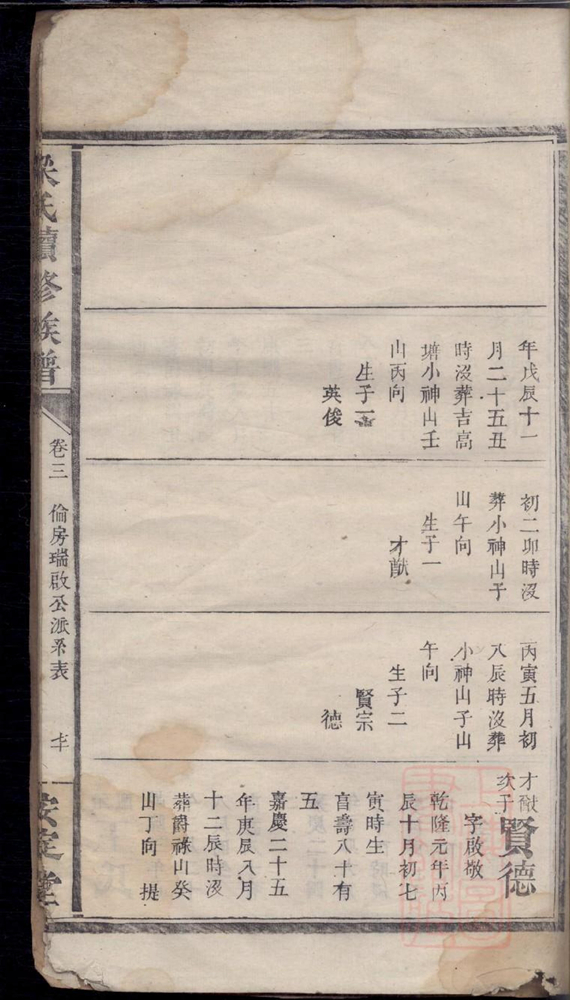 年戊辰十一
月二十五丑
時沒葬吉高
塘小神山壬
山丙向
生子一
英俊
初二卯時沒
葬小神山子
山午向
生子一
才猷
丙寅五月初
八辰時沒葬
小神山子山
午向
生子二
賢宗
德
才猷次子
賢德
字啟敬
乾隆元年丙
辰十月初七
寅時生
享壽八十有
五
嘉慶二十五
年庚辰八月
十二辰時沒
葬爵祿山癸
山丁向 提
氏續修族譜
卷三 倫房瑞啟公派系表
安定堂